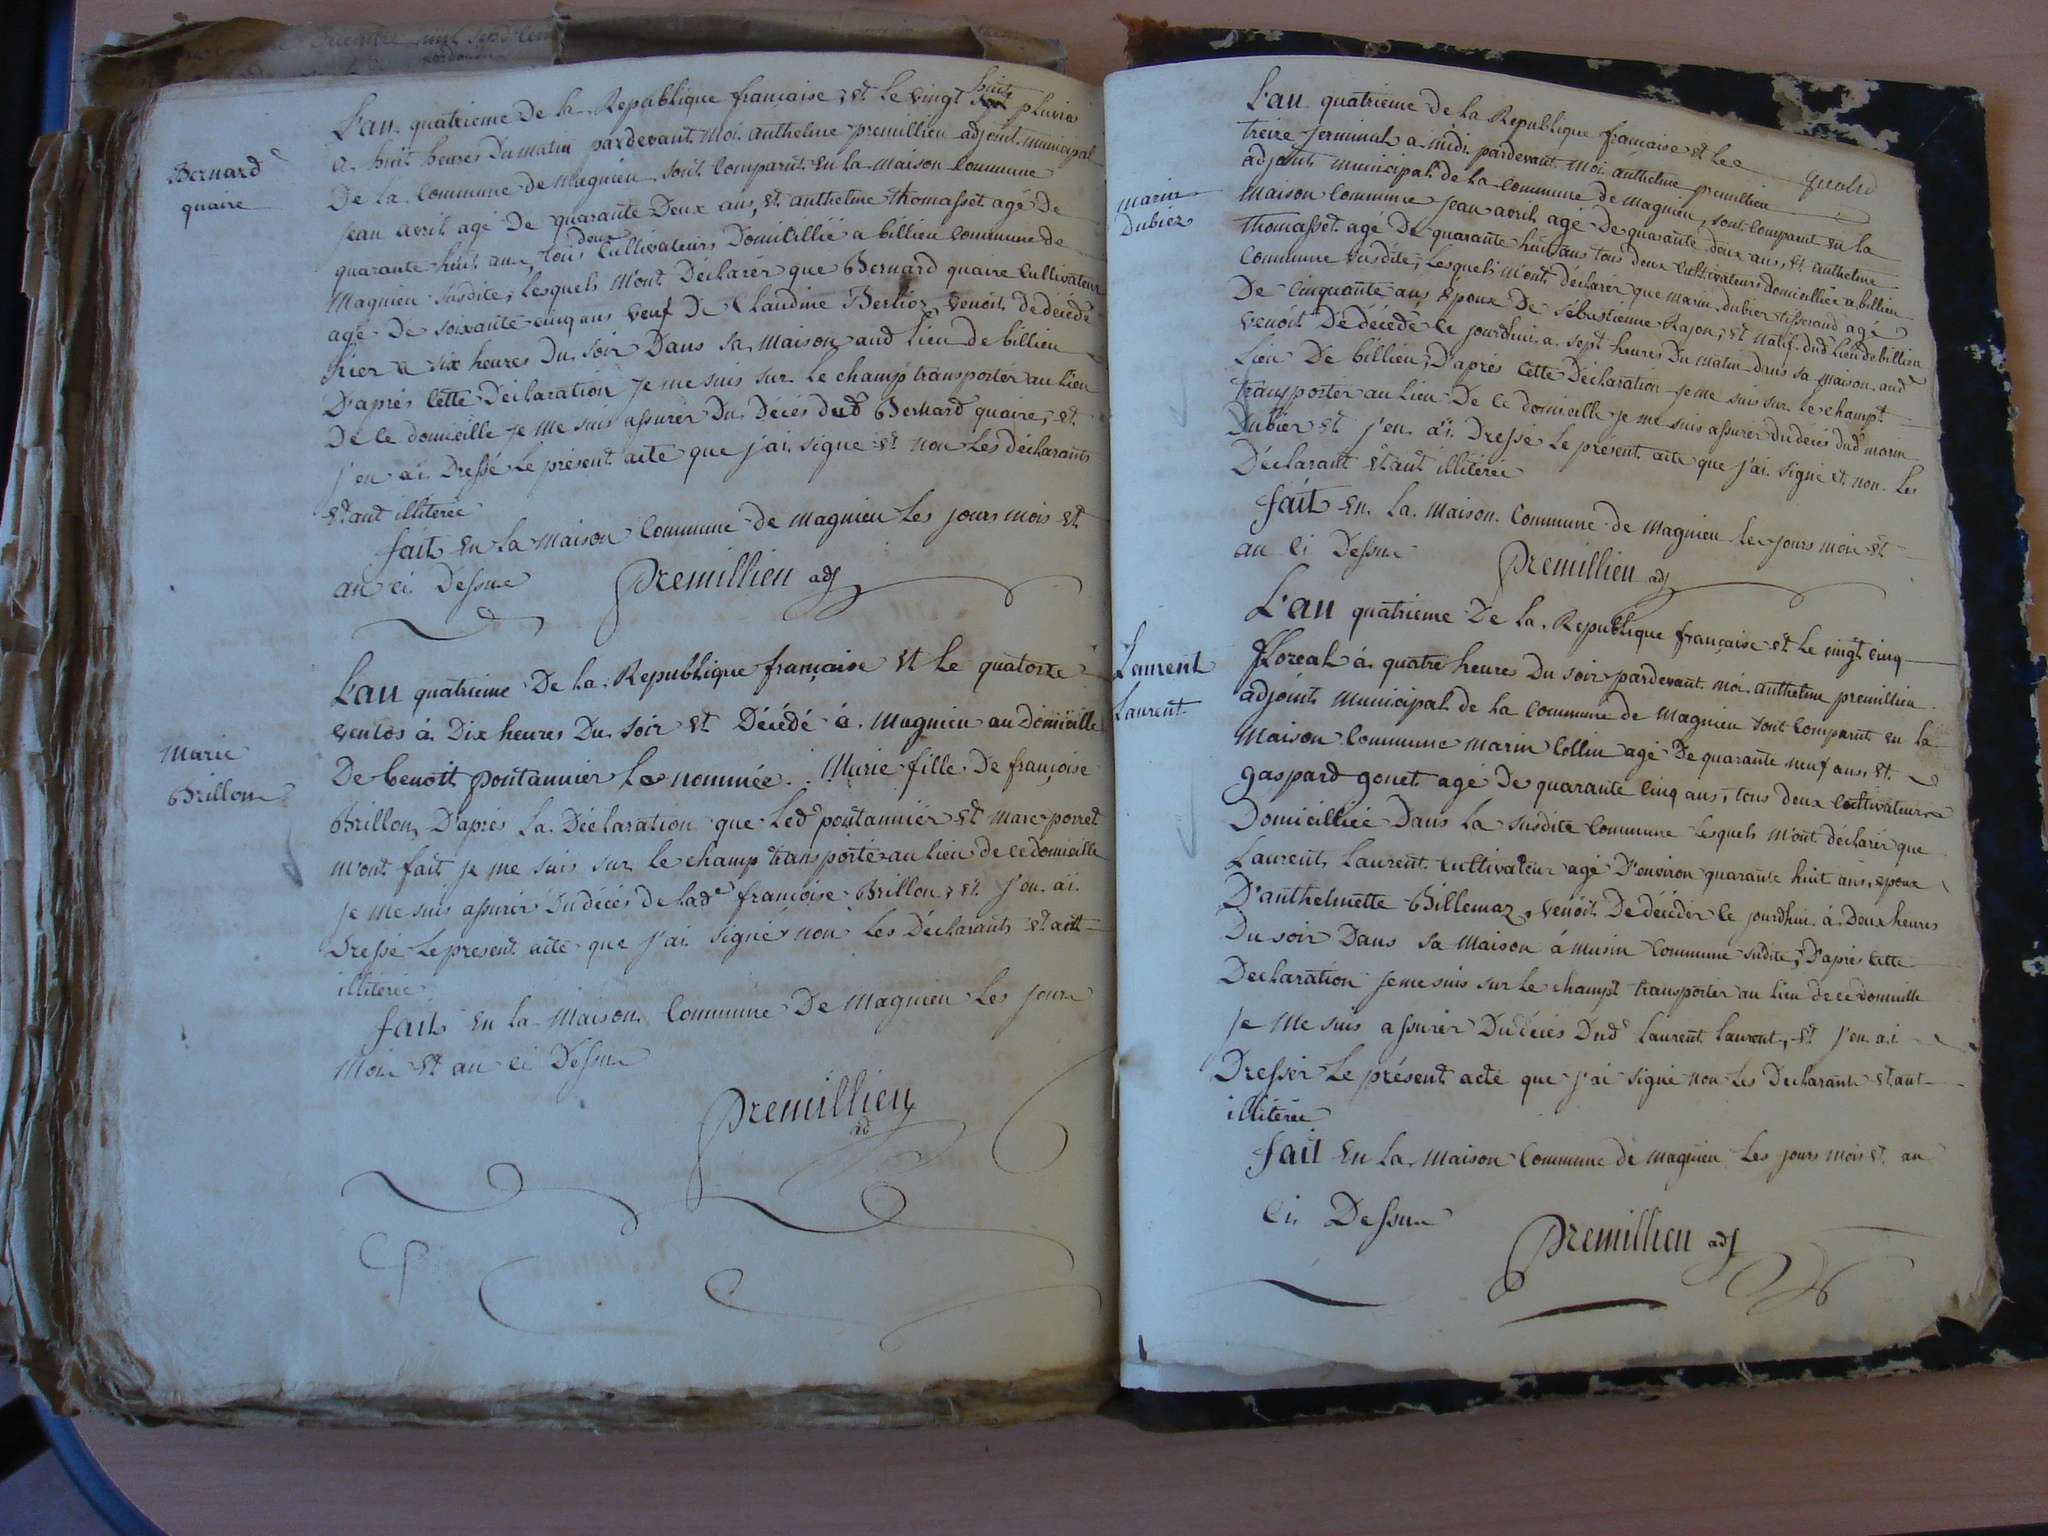 Bernard
quaire
L'an quatrieme de la Republique francaise, et le vingt huit pluvios
a huit heures du matin pardevant moi anthelme premillieu adjoint municipal
De la commune de magnieu sont comparut en la maison commune
jean avril agé de quarante deux ans, et anthelme thomasset agé de
quarante huit ans, tous deux cultivateurs domicillié a billieu commune de
magnieu susdite, lesquels m'ont déclarér que Bernard quaire cultivateur
agé de soixante cinq ans veuf de Claudine Berlioz, venoit de décédé
hier a six heures du soir dans sa maison aud lieu de billieu
D'aprés cette déclaration je me suis sur le champ transportér au lieu
De ce domicille je me suis assurér du décés dud Bernard quaire, et
j'en ai dressé le présent acte que j'ai signé et non les déclarants
etant illiterée
fait en la maison commune de magnieu les jours mois et
an ci dessus premillieu adj
Marie
Brillon
L'an quatrieme de la Republique française et le quatorze
ventos á dix heures du soir et décédé á magnieu au domicille
De benoit pontannier la nommée Marie fille de françoise
Brillon, D'aprés la déclaration que led pontannier et marc porret
m'ont fait je me suis sur le champ transporté au lieu de ce domicille
je me suis assurér du décés de lad françoise Brillon, et j'en ai
dressé le present acte que j'ai signé non les déclarants etant
illiterée
fait en la maison commune de magnieu les jours
mois et an ci dessus
premillieu
ad
L'an quatrieme de la Republique française et le
treize jerminal a midi pardevant moi anthelme premillieu
marin
Dubiez
adjoint municipal de la commune de magnieu, sont comparut en la
maison commune jean avril agé de quarante deux ans, et anthelme
thomasset agé de quarante huit ans tous deux cultivateurs domicilliée a billieu
commune susdite, lesquels m'ont déclarér que marin dubier tisserand agé
De cinquante ans époux de sébastienne Rajon, et natif dud lieu de billieu
venoit de décédé ce jourdhui a sept heures du matin dans sa maison aud
lieu de billieu, d'aprés cette déclaration je me suis sur le champt
transportér au lieu de ce domicille je me suis assurér du décés dud marin
dubier et j'en ai dressé le présent acte que j'ai signé et non les
déclarant etant illiterée
fait en la maison commune de magnieu les jours mois et
an ci dessus premillieu adj
Laurent
Laurent
L'an quatrieme de la Republique française et le vingt cinq
floreal á quatre heures du soir pardevant moi anthelme premillieu
adjoint municipal de la commune de magnieu sont comparut en la
maison commune marin Collin agé de quarante neuf ans, et
gaspard gonet agé de quarante cinq ans, tous deux cultivateurs
domicilliée dans la susdite commune lesquels m'ont déclarér que
Laurent Laurent cultivateur agé d'environ quarante huit ans, epoux
D'anthelmette Billemaz, venoit de décéder ce jourdhui á deux heures
du soir dans sa maison á musin commune sudite, d'aprés cette
declaration je me suis sur le champt transporter au lieu de ce domicille
je me suis assurér du décés dud Laurent Laurent, et j'en ai
dressér le présent acte que j'ai signé non les declarants etant
illiterée
fait en la maison commune de magnieu les jours mois et an
ci dessus
premillieu adj